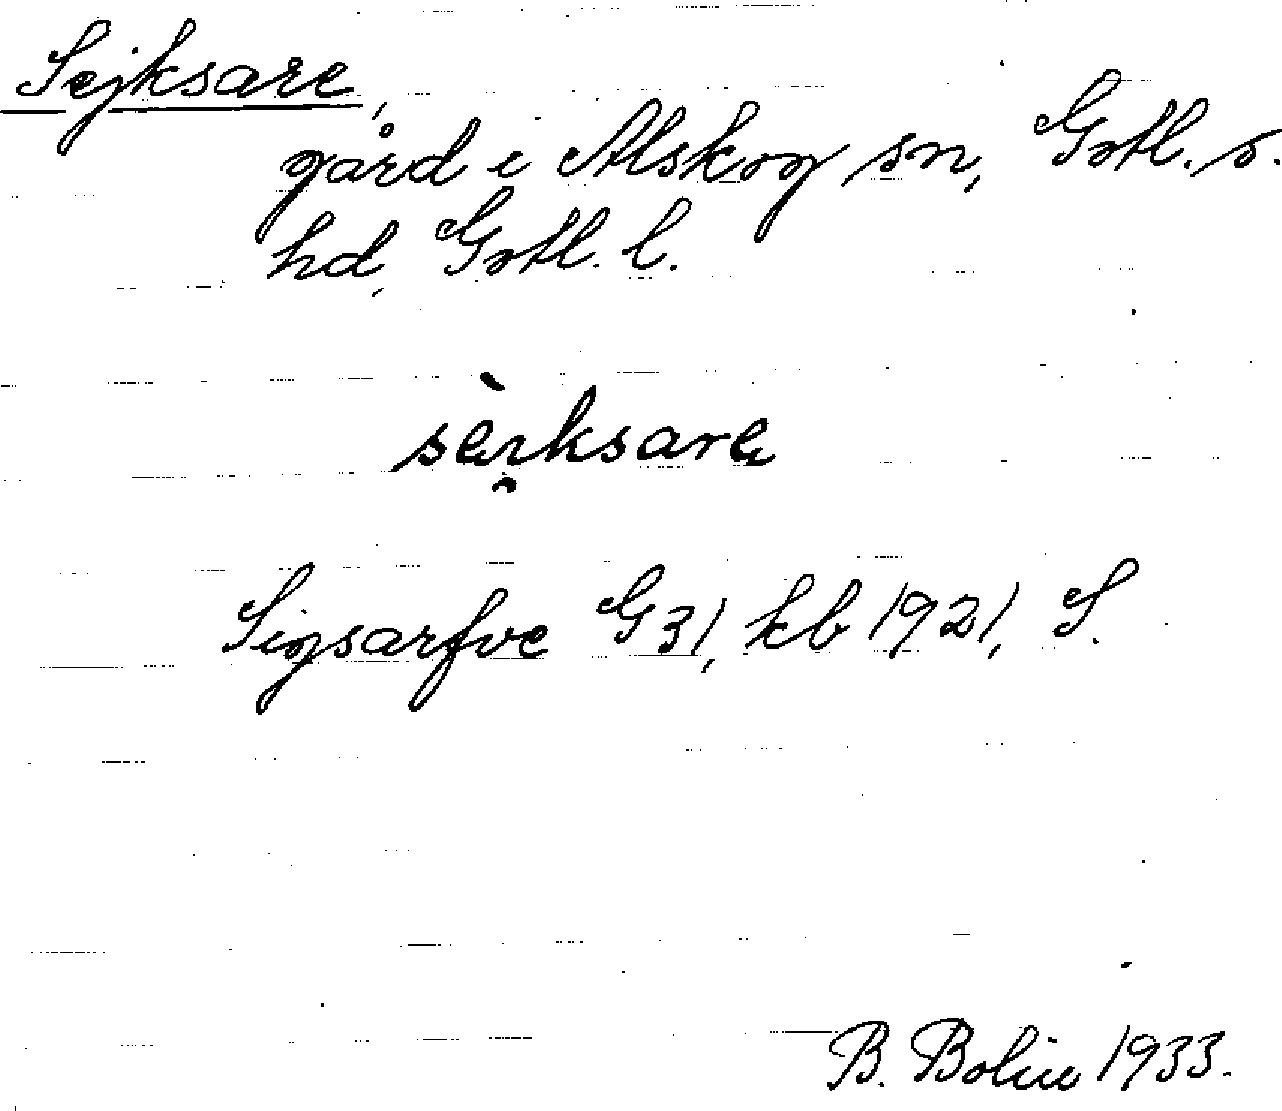 Sejksare,
gård i Alskog sn, Gotl. s.
hd, Gotl. l.
Sigsarfve G31, kb 1921, S.
B. Bolin 1933.